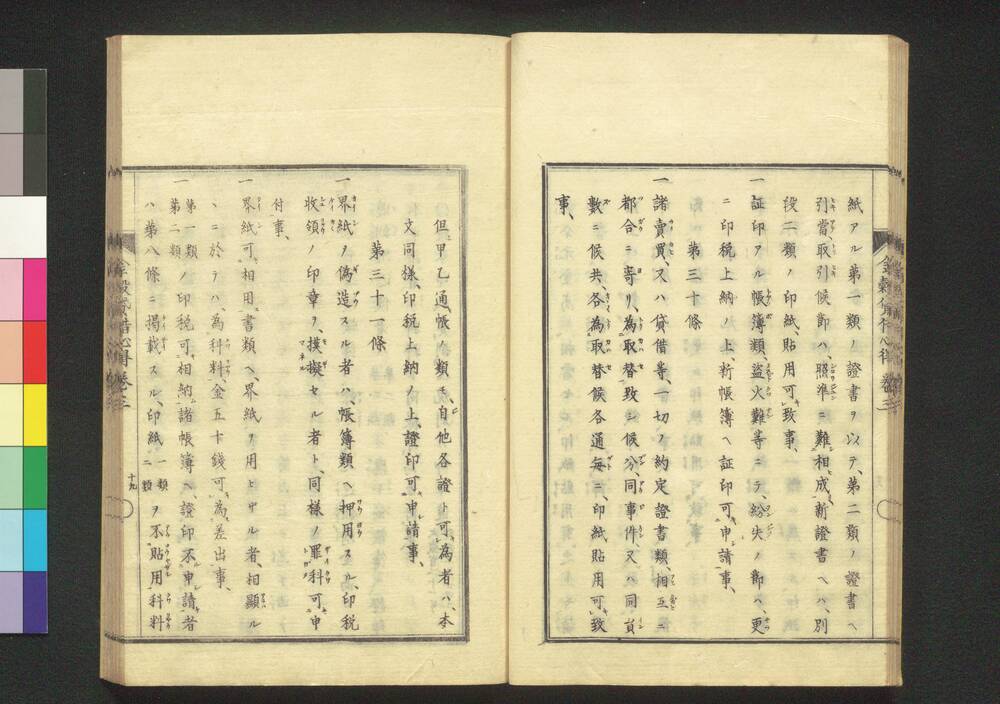 紙アル第一類ノ證書ヲ以テ、第二類ノ證書ヘ
引當取引候節ハ、照準ニ難相成、新證書ヘハ、別
段二類ノ印紙、貼用可致事、
一 証印アル帳簿類、盜火難等ニテ、紛失ノ節ハ、更
ニ印税上納ノ上、新帳簿ヘ証印可申請事、
第三十條
一 諸賣買、又ハ貸借等、一切ノ約定證書類、相互ニ
都合ニ寄リ、為取替致シ候分、同事件、又ハ同員
數ニ候共、各為取替候各通每ニ、印紙貼用可致
事、
但甲乙通帳ノ類モ、自他各證ト可為者ハ、本
文同様、印税上納ノ上、證印可申請事、
第三十一條
一 界紙ヲ偽造スル者ハ、帳簿類ヘ押用スル、印税
收領ノ印章ヲ、摸擬セル者ト、同様ノ罪科可申
付事、
一 界紙可相用書類ヘ、界紙ヲ用ヒサル者、相顯ル
ヽニ於テハ、為科料、金五十錢可為差出事、
一 第一類第二類ノ印税可相納諸帳簿ヘ、證印不申請者
ハ第八條ニ掲載スル、印紙一類二類ヲ不貼用科料
卷三
十九